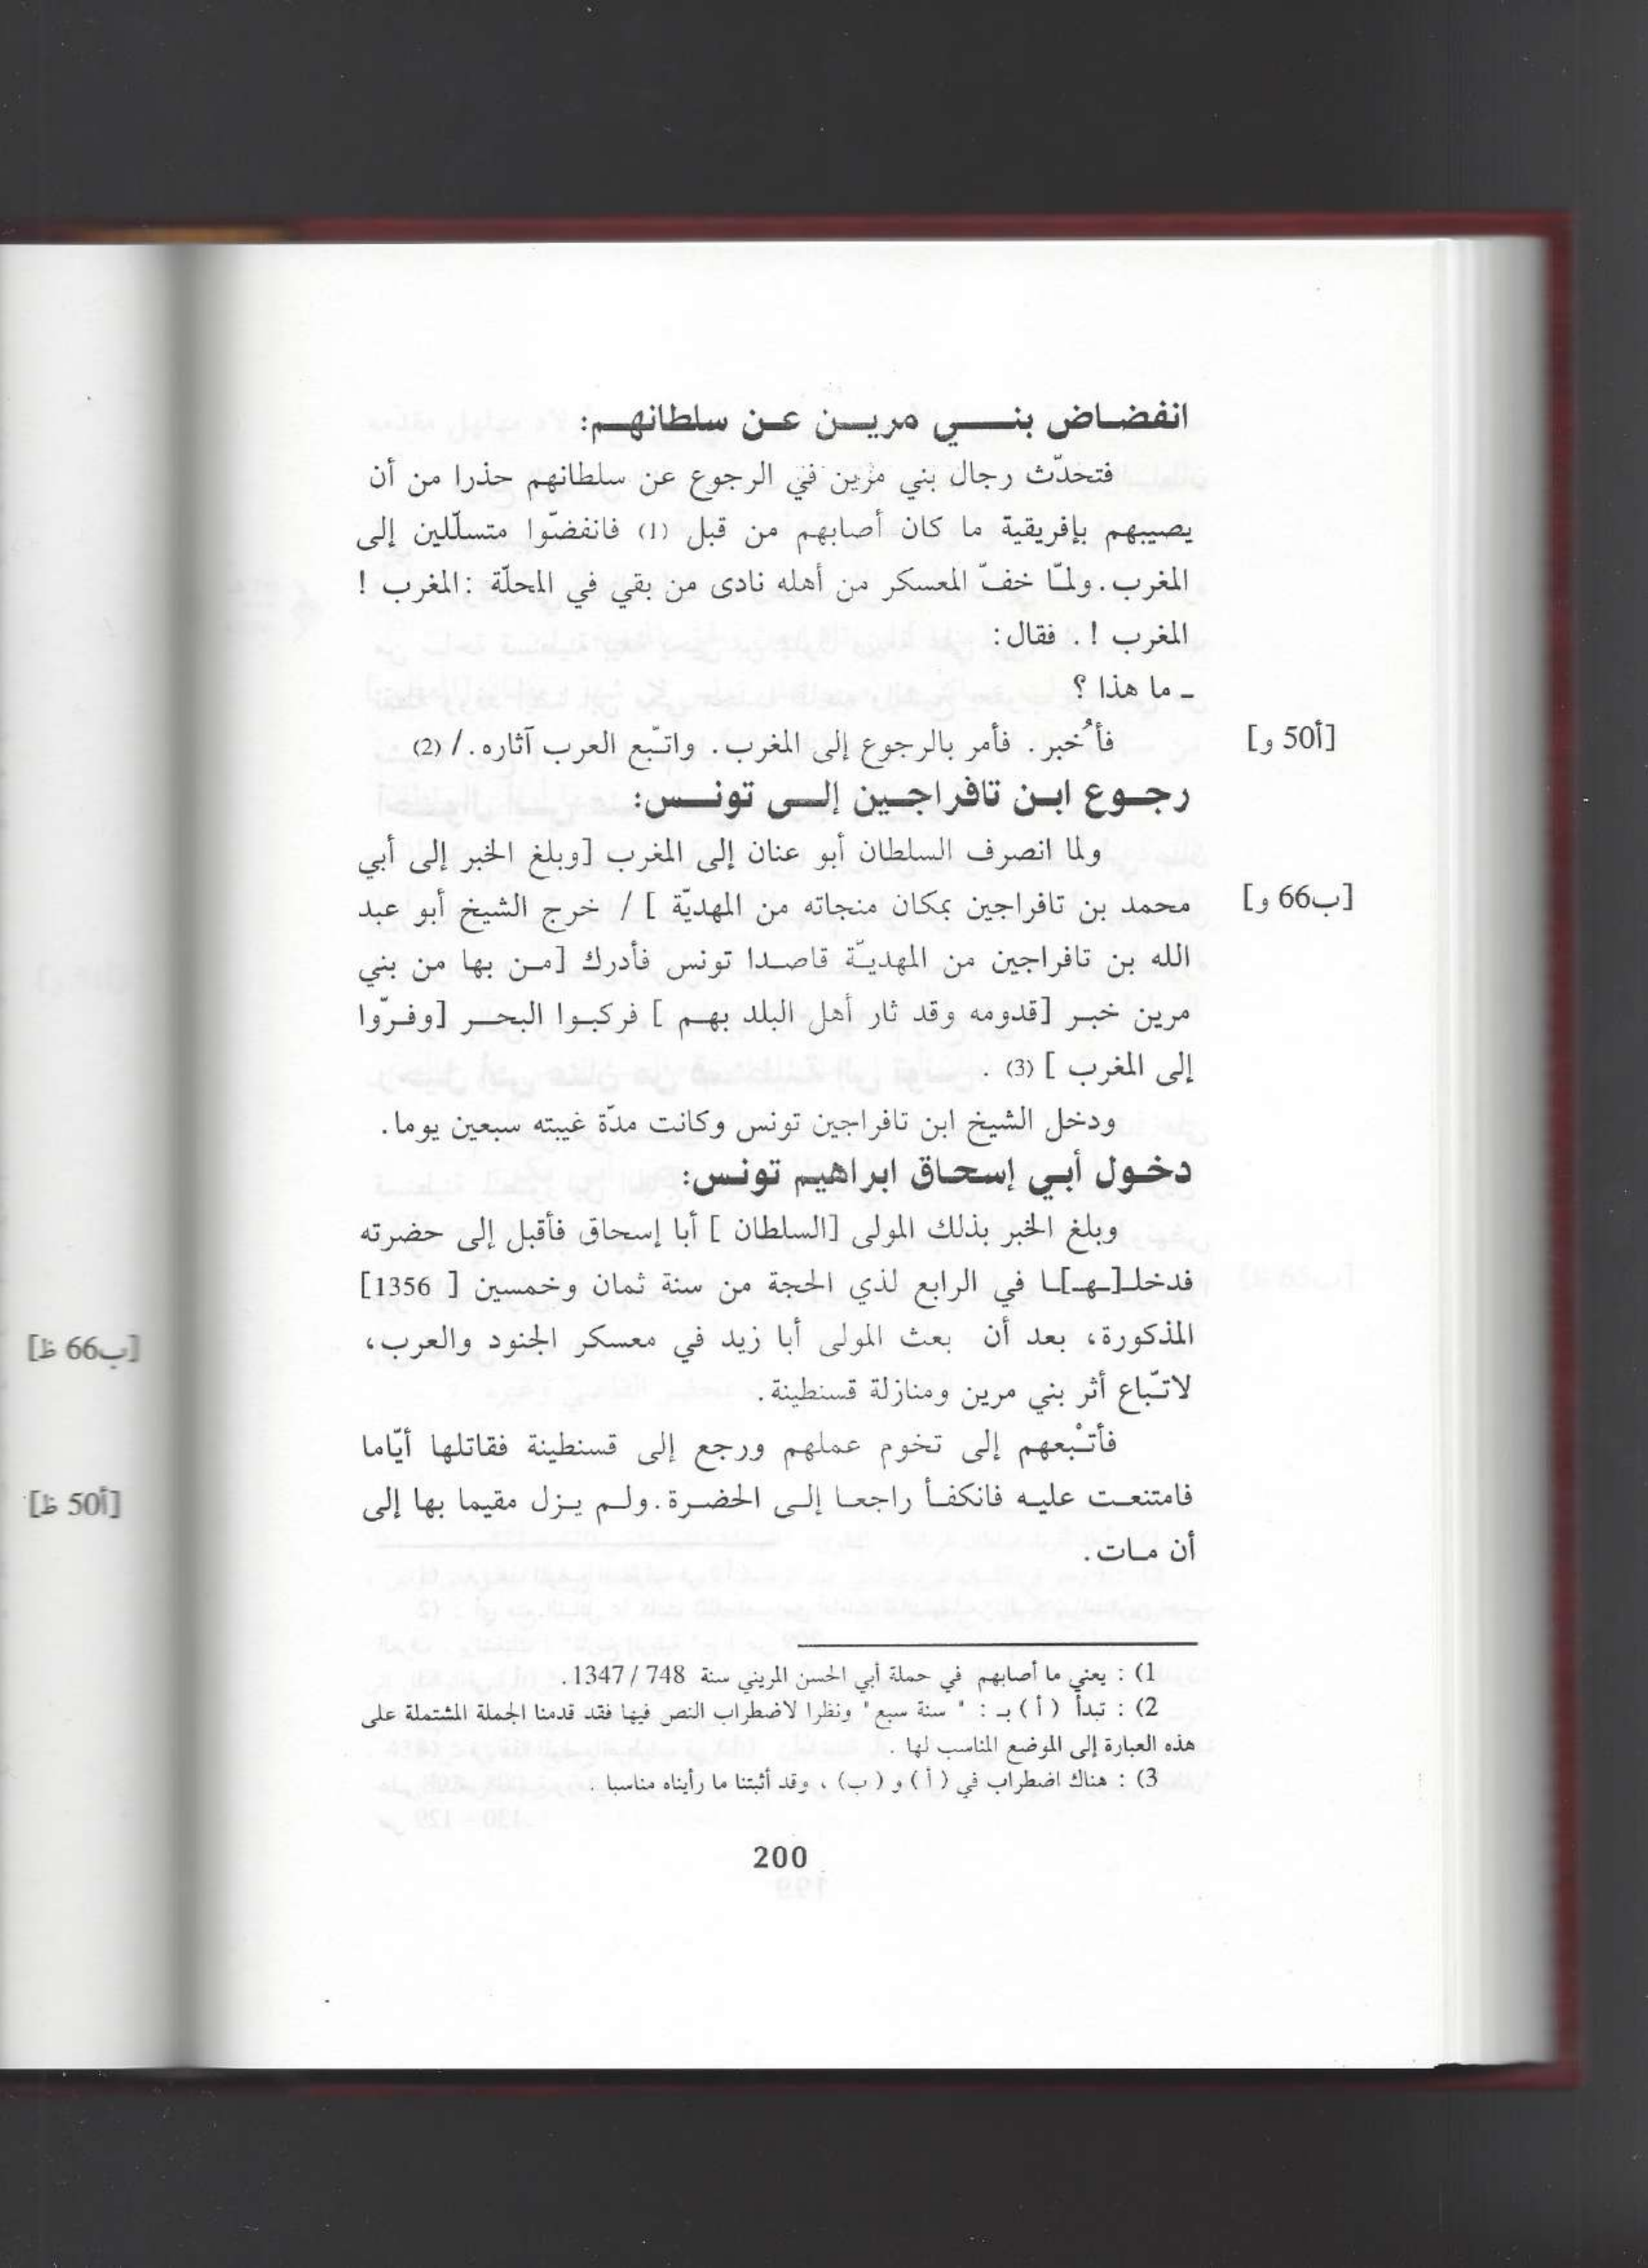 انفضاض بني مرين عن سلطانهم:
فتحدّث رجال بني مرين في الرجوع عن سلطانهم حذرا من أن
يصيبهم بإفريقية ما كان أصابهم من قبل (1) فانفضّوا متسلّلين إلى
المغرب. ولمّا خفّ المعسكر من أهله نادى من بقي في المحلّة : المغرب !
المغرب !. فقال:
ـ ما هذا ؟
[أ50 و]
فأُخبر. فأمر بالرجوع إلى المغرب. واتّبع العرب آثاره. / (2)
رجوع ابن تافراجين إلى تونس:
ولما انصرف السلطان أبو عنان إلى المغرب [وبلغ الخبر إلى أبي
[ب66 و]
محمد بن تافراجين بمكان منجاته من المهديّة ] / خرج الشيخ أبو عبد
الله بن تافراجين من المهديّة قاصدا تونس فأدرك [من بها من بني
مرين خبر [قدومه وقد ثار أهل البلد بهم ] فركبوا البحر [وفرّوا
إلى المغرب ] (3) .
ودخل الشيخ ابن تافراجين تونس وكانت مدّة غيبته سبعين يوما.
دخول أبي إسحاق ابراهيم تونس:
وبلغ الخبر بذلك المولى [السلطان ] أبا إسحاق فأقبل إلى حضرته
فدخلـ[ـهـ]ـا في الرابع لذي الحجة من سنة ثمان وخمسين [ 1356]
المذكورة، بعد أن بعث المولى أبا زيد في معسكر الجنود والعرب،
لاتّباع أثر بني مرين ومنازلة قسنطينة.
فأتْبعهم إلى تخوم عملهم ورجع إلى قسنطينة فقاتلها أيّاما
فامتنعت عليه فانكفأ راجعا إلى الحضرة. ولم يزل مقيما بها إلى
أن مات.
1) : يعني ما أصابهم في حملة أبي الحسن المريني سنة 748 / 1347.
2) : تبدأ ( أ ) بـ : " سنة سبع" ونظرا لاضطراب النص فيها فقد قدمنا الجملة المشتملة على
هذه العبارة إلى الموضع المناسب لها .
3) : هناك اضطراب في ( أ ) و ( ب) ، وقد أثبتنا ما رأيناه مناسبا .
200
[ب66 ظ]
[أ50 ظ]